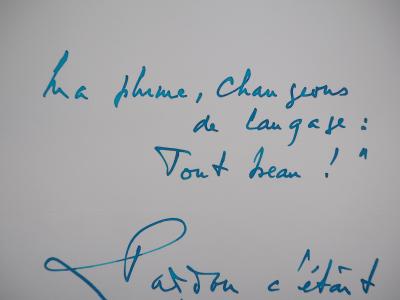 Ma plume, changeons
de langage :
Tout beau ! "
Pardon c'était